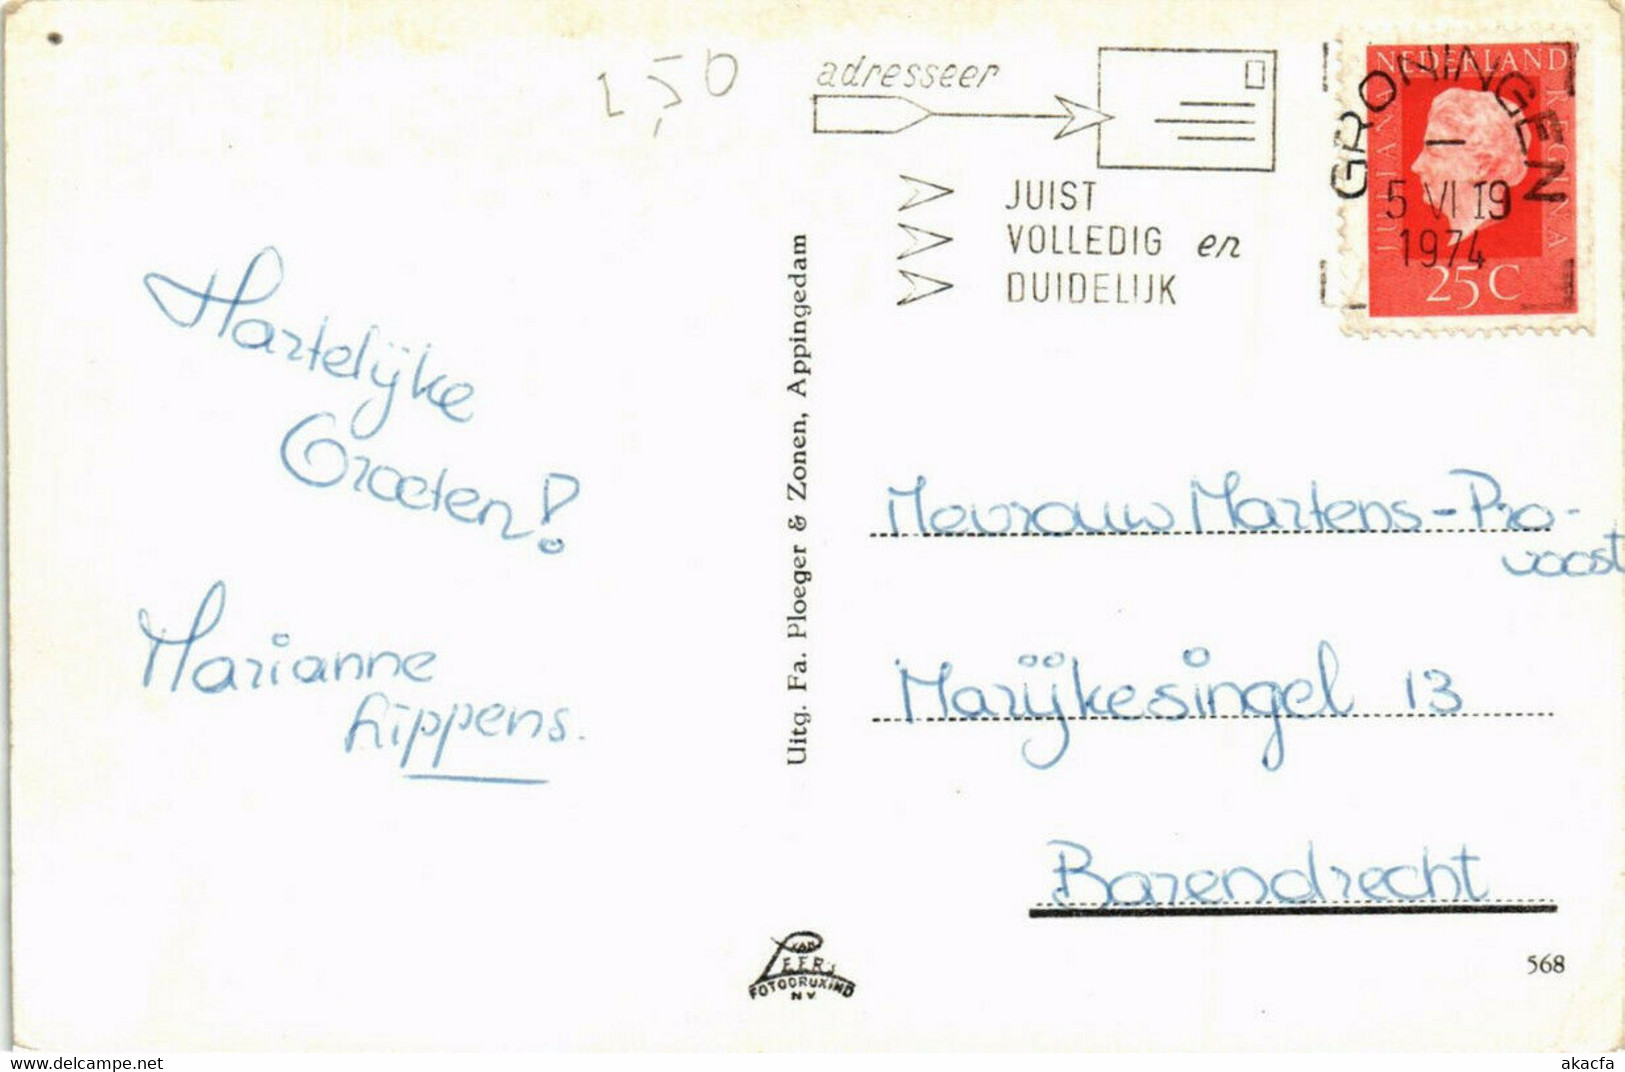 1,50
adresseer
JUIST
VOLLEDIG en
DUIDELIJK
GRONINGEN
5 VI 19
1974
NEDERLAND
JULIANA
REGINA
25 C
Hartelijke
Groeten!
Marianne
Lippens.
Uitg. Fa. Ploeger & Zonen, Appingedam
Mevrouw Martens-Pro-
voost
Marijkesingel 13
Barendrecht
VAN
LEER'S
FOTODRUKIND
N.V.
568
delcampe.net
akacfa